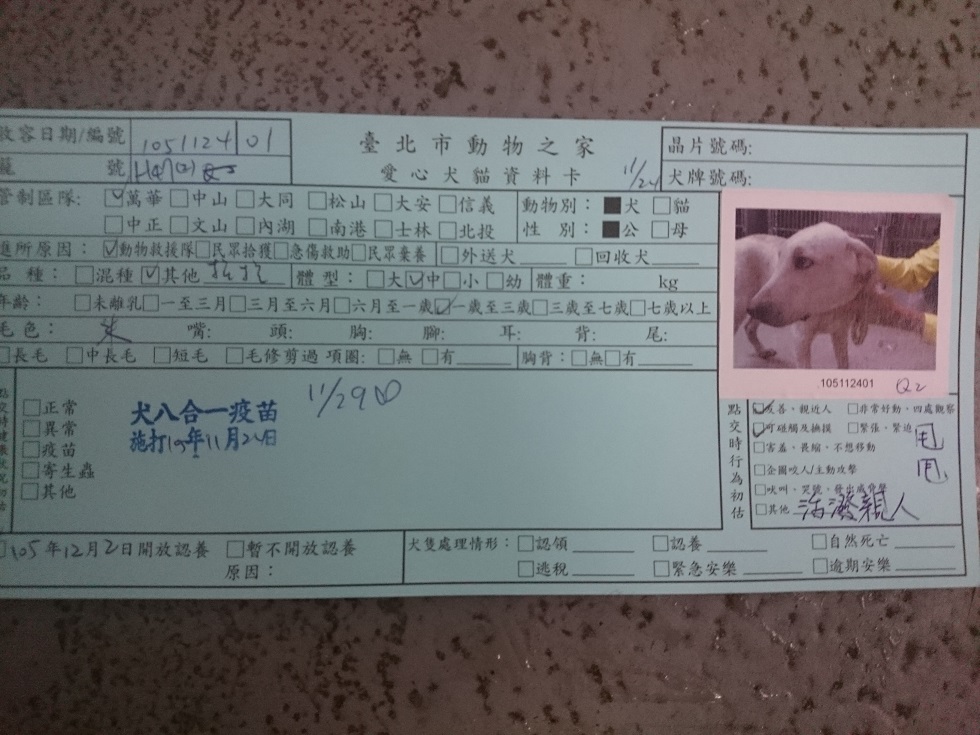 收容日期/編號 1051124 01
臺北市動物之家
愛心犬貓資料卡 11/24
晶片號碼:
犬牌號碼:
號
管制區隊: ☑萬華 □中山 □大同 □松山 □大安 □信義
□中正 □文山 □內湖 □南港 □士林 □北投
動物別: ■犬 □貓
性 別: ■公 □母
進所原因: ☑動物救援隊 □民眾拾獲 □急傷救助 □民眾棄養 □外送犬 □回收犬
品 種: □混種 ☑其他
體 型: □大 ☑中 □小 □幼 體重: kg
年齡: □未離乳 □一至三月 □三月至六月 □六月至一歲 ☑一歲至三歲 □三歲至七歲 □七歲以上
毛色: 米 嘴: 頭: 胸: 腳: 耳: 背: 尾:
□長毛 □中長毛 □短毛 □毛修剪過 項圈: □無 □有 胸背: □無 □有
105112401 Q2
□正常
□異常
□疫苗
□寄生蟲
□其他
犬八合一疫苗
施打105年11月24日
11/29
點交時行為初估
☑友善、親近人 □非常好動、四處觀察
☑可碰觸及撫摸 □緊張、緊迫
□害羞、畏縮、不想移動
□企圖咬人/主動攻擊
□吠叫、哭號、發出威脅聲
□其他 活潑親人
甩
甩
□105年12月2日開放認養 □暫不開放認養
原因:
犬隻處理情形: □認領 □認養 □自然死亡
□逃脫 □緊急安樂 □逾期安樂